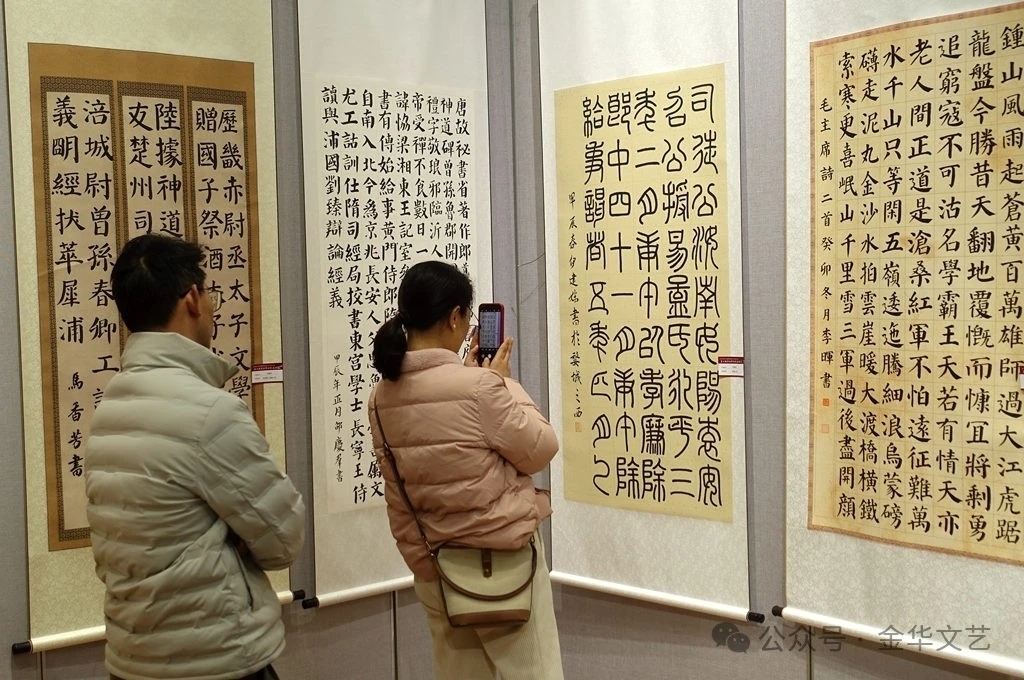 鍾山風雨起蒼黄百萬雄師過大江虎踞
龍盤今勝昔天翻地覆慨而慷宜將剩勇
追窮寇不可沽名學霸王天若有情天亦
老人間正道是滄桑紅軍不怕遠征難萬
水千山只等閑五嶺逶迤騰細浪烏蒙磅
礴走泥丸金沙水拍雲崖暖大渡橋横鐵
索寒更喜岷山千里雪三軍過後盡開顔
毛主席詩二首癸卯冬月李暉書
司徒公汝南女陽袁安
召公授易孟氏永平三
年二月庚午以孝廉除
郎中四十一月庚午除
給事謁者五年正月乙
甲辰春 建 書於婺城之西
唐故秘書省著作郎
神道碑曾孫魯郡開
禮字敬琅邪臨沂人
帝受禪不食數日一
諱協梁湘東王記室
書有傳始給事黄門侍郎
自南入北今為京兆長安人父思魯
尤工詁訓仕隋司經局挍書東宮學士長寧王侍
讀與沛國劉臻辯論經義
甲辰年正月邵慶 書
歷畿赤尉丞太子文學
贈國子祭酒
陸據神道
友楚州司
涪城尉曾孫春卿工
義明經拔萃犀浦
馬香芳書
公众号·金华文艺